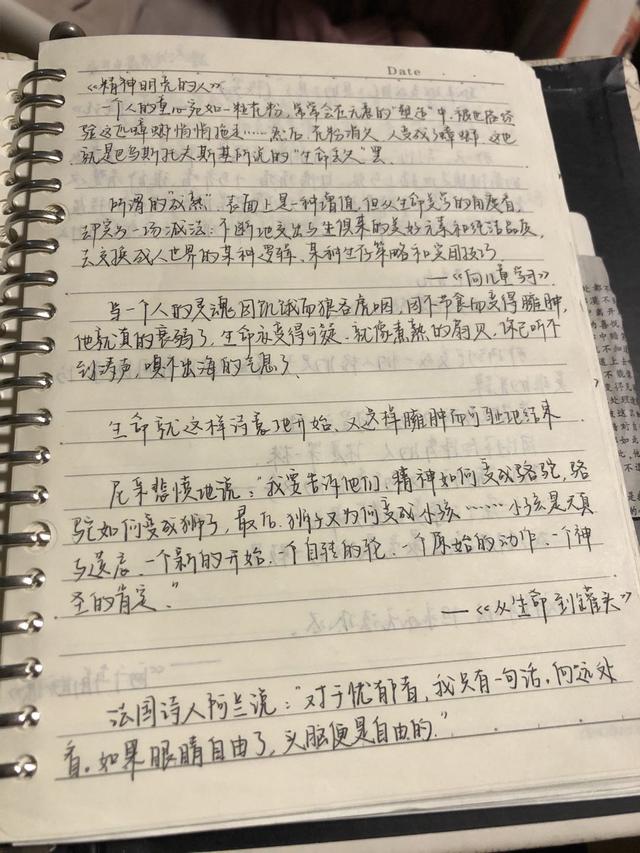 Date
《精神明亮的人》
一个人的童心宛如一粒花粉,常常会在无意的"塑造"中,被世故经
验这匹蟑螂悄悄拖走……然后,花粉消失,人变成了蟑螂。这也
就是巴乌斯托夫斯基所说的"生命丢失"罢
所谓的"成熟",表面上是一种增值,但从生命美学的角度看,
却实为一场减法:不断地交出与生俱来的美好元素和纯洁品质,
去交换成人世界的某种逻辑、某种生存策略和实用技巧
——《向儿童学习》
当一个人的灵魂因饥饿而狼吞虎咽,因不节食而变得臃肿,
他就真的衰弱了,生命亦变得可疑。就像煮熟的扇贝,你已听不
到涛声,嗅不出海的气息了
生命就这样诗意地开始,又这样臃肿而可耻地结束
尼采悲愤地说:"我要告诉他们,精神如何变成骆驼,骆
驼如何变成狮子,最后,狮子又为何变成小孩……小孩是天真
与遗忘,一个新的开始,一个自转的轮,一个原始的动作,一个神
圣的肯定。"
——《从生命到罐头》
法国诗人阿兰说:"对于忧郁者,我只有一句话,向远处
看。如果眼睛自由了,头脑便是自由的."